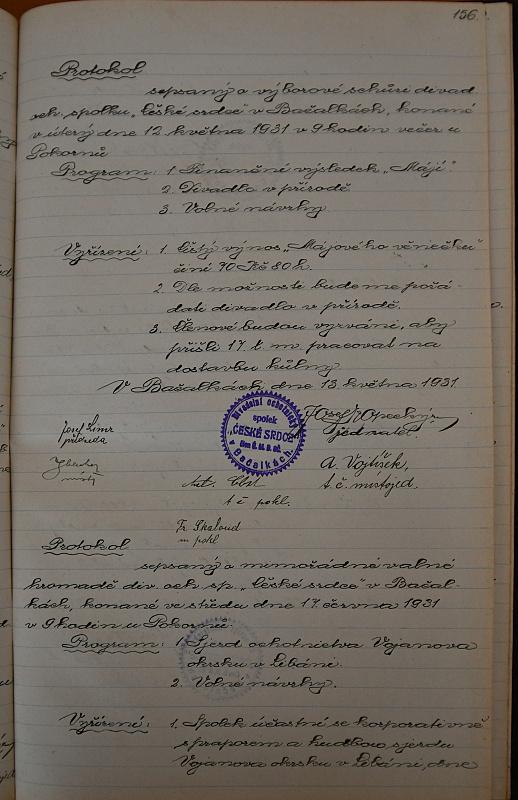 156.
Protokol
sepsaný o výborové schůzi divad.
och. spolku „České srdce" v Bačalkách, konané
v úterý dne 12. května 1931 v 9 hodin večer u
Pokornů
Program: 1. Finanční výsledek „Májí".
2. Divadlo v přírodě
3. Volné návrhy.
Vyřízení: 1. Čistý výnos „Májového věnečku"
činí 70 Kč 80 h.
2. Dle možnosti budeme pořá-
dati divadlo v přírodě.
3. Členové budou vyzváni, aby
přišli 17. t. m. pracovat na
dostavbu kůlny.
V Bačalkách, dne 13. května 1931.
Divadelní ochotnický
spolek
„ČESKÉ SRDCE"
v Bačalkách.
Josef
předseda
jednatel.
A. Vojtíšek,
t. č. místojed.
Ant.
t. č. pokl.
Fr. Skaloud
m pokl
Protokol
sepsaný o mimořádné valné
hromadě div. och. sp. „České srdce" v Bačal-
kách, konané ve středu dne 17. června 1931
v 9 hodin u Pokornů
Program: 1. Sjezd ochotnictva Vojanova
okrsku v Libáni.
2. Volné návrhy.
Vyřízení: 1. Spolek účastní se korporativně
s praporem a hudbou sjezdu
Vojanova okrsku v Libáni, dne